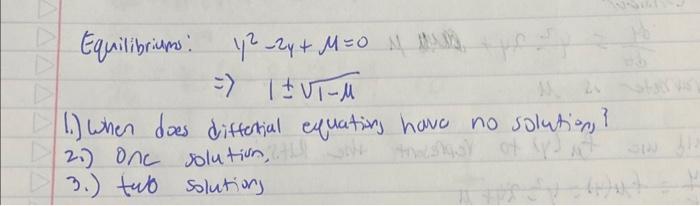 Equilibriums: y² - 2y + M = 0
=> 1 ± √1-M
1.) When does differtial equations have no solutions?
2.) One solution,
3.) two solutions